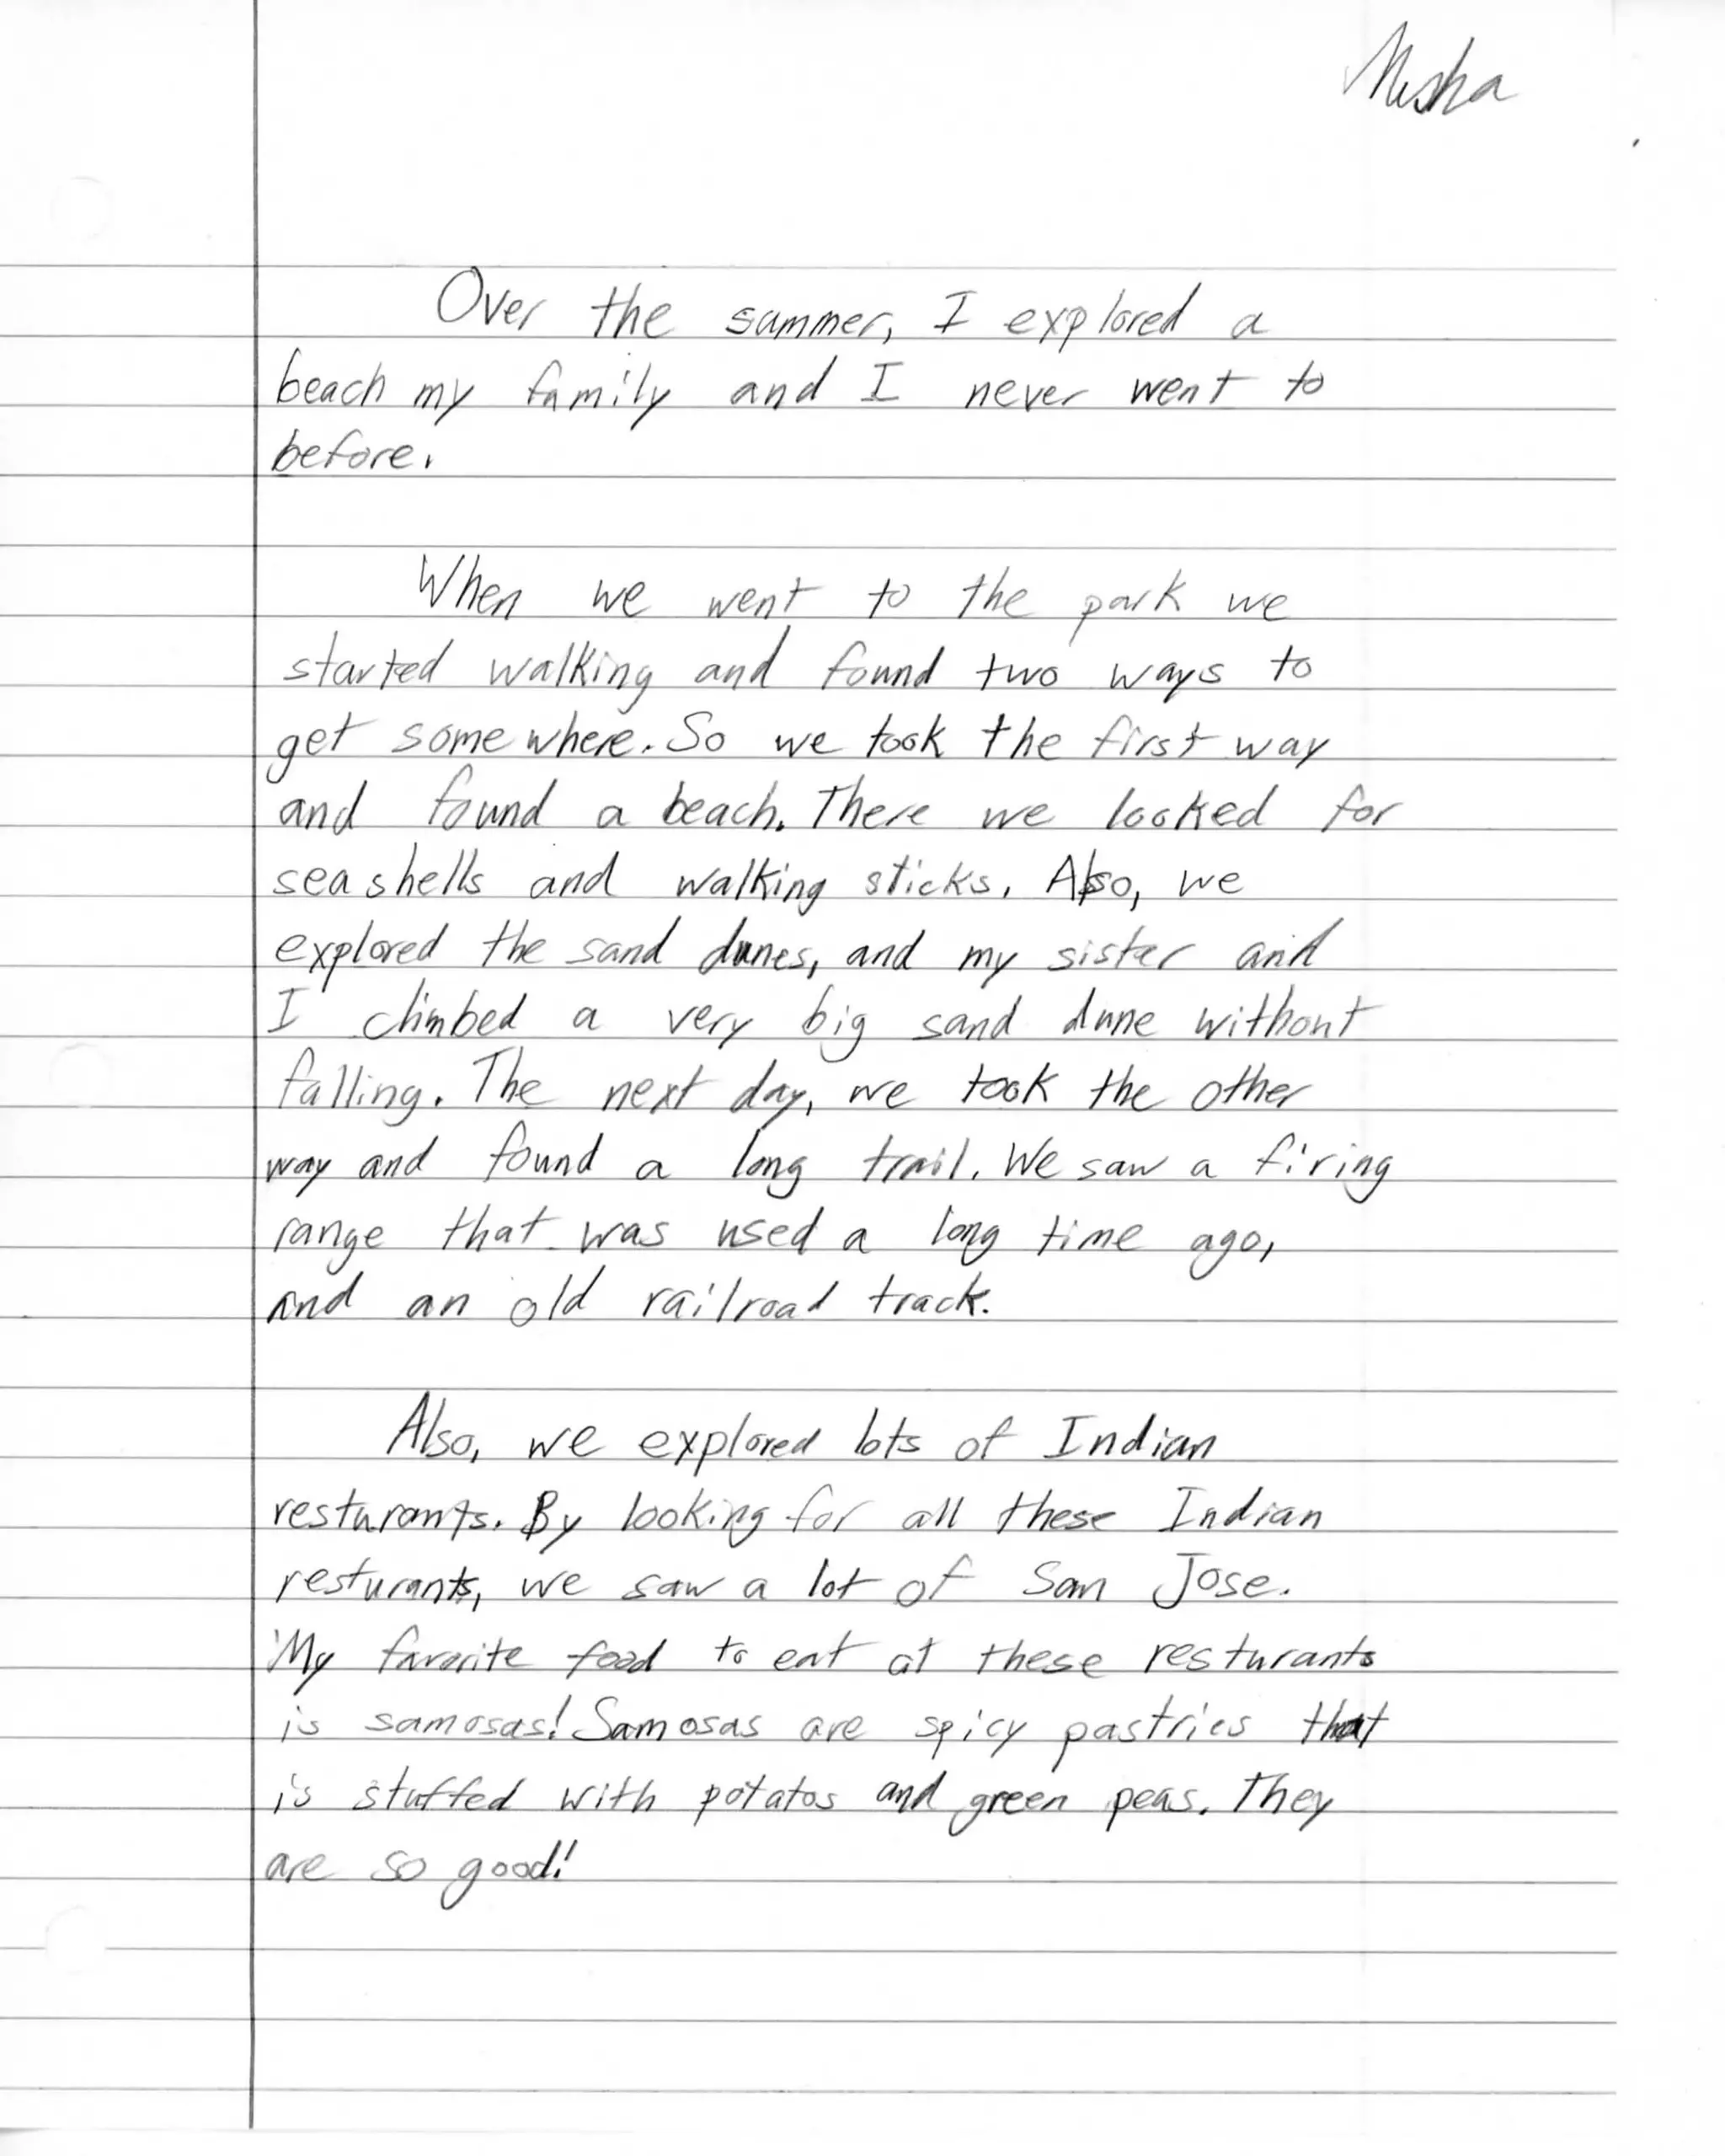 Misha
Over the summer, I explored a
beach my family and I never went to
before.
When we went to the park we
started walking and found two ways to
get somewhere. So we took the first way
and found a beach. There we looked for
seashells and walking sticks. Also, we
explored the sand dunes, and my sister and
I climbed a very big sand dune without
falling. The next day, we took the other
way and found a long trail. We saw a firing
range that was used a long time ago,
and an old railroad track.
Also, we explored lots of Indian
resturants. By looking for all these Indian
resturants, we saw a lot of San Jose.
My favorite food to eat at these resturants
is samosas! Samosas are spicy pastries that
is stuffed with potatos and green peas. They
are so good!